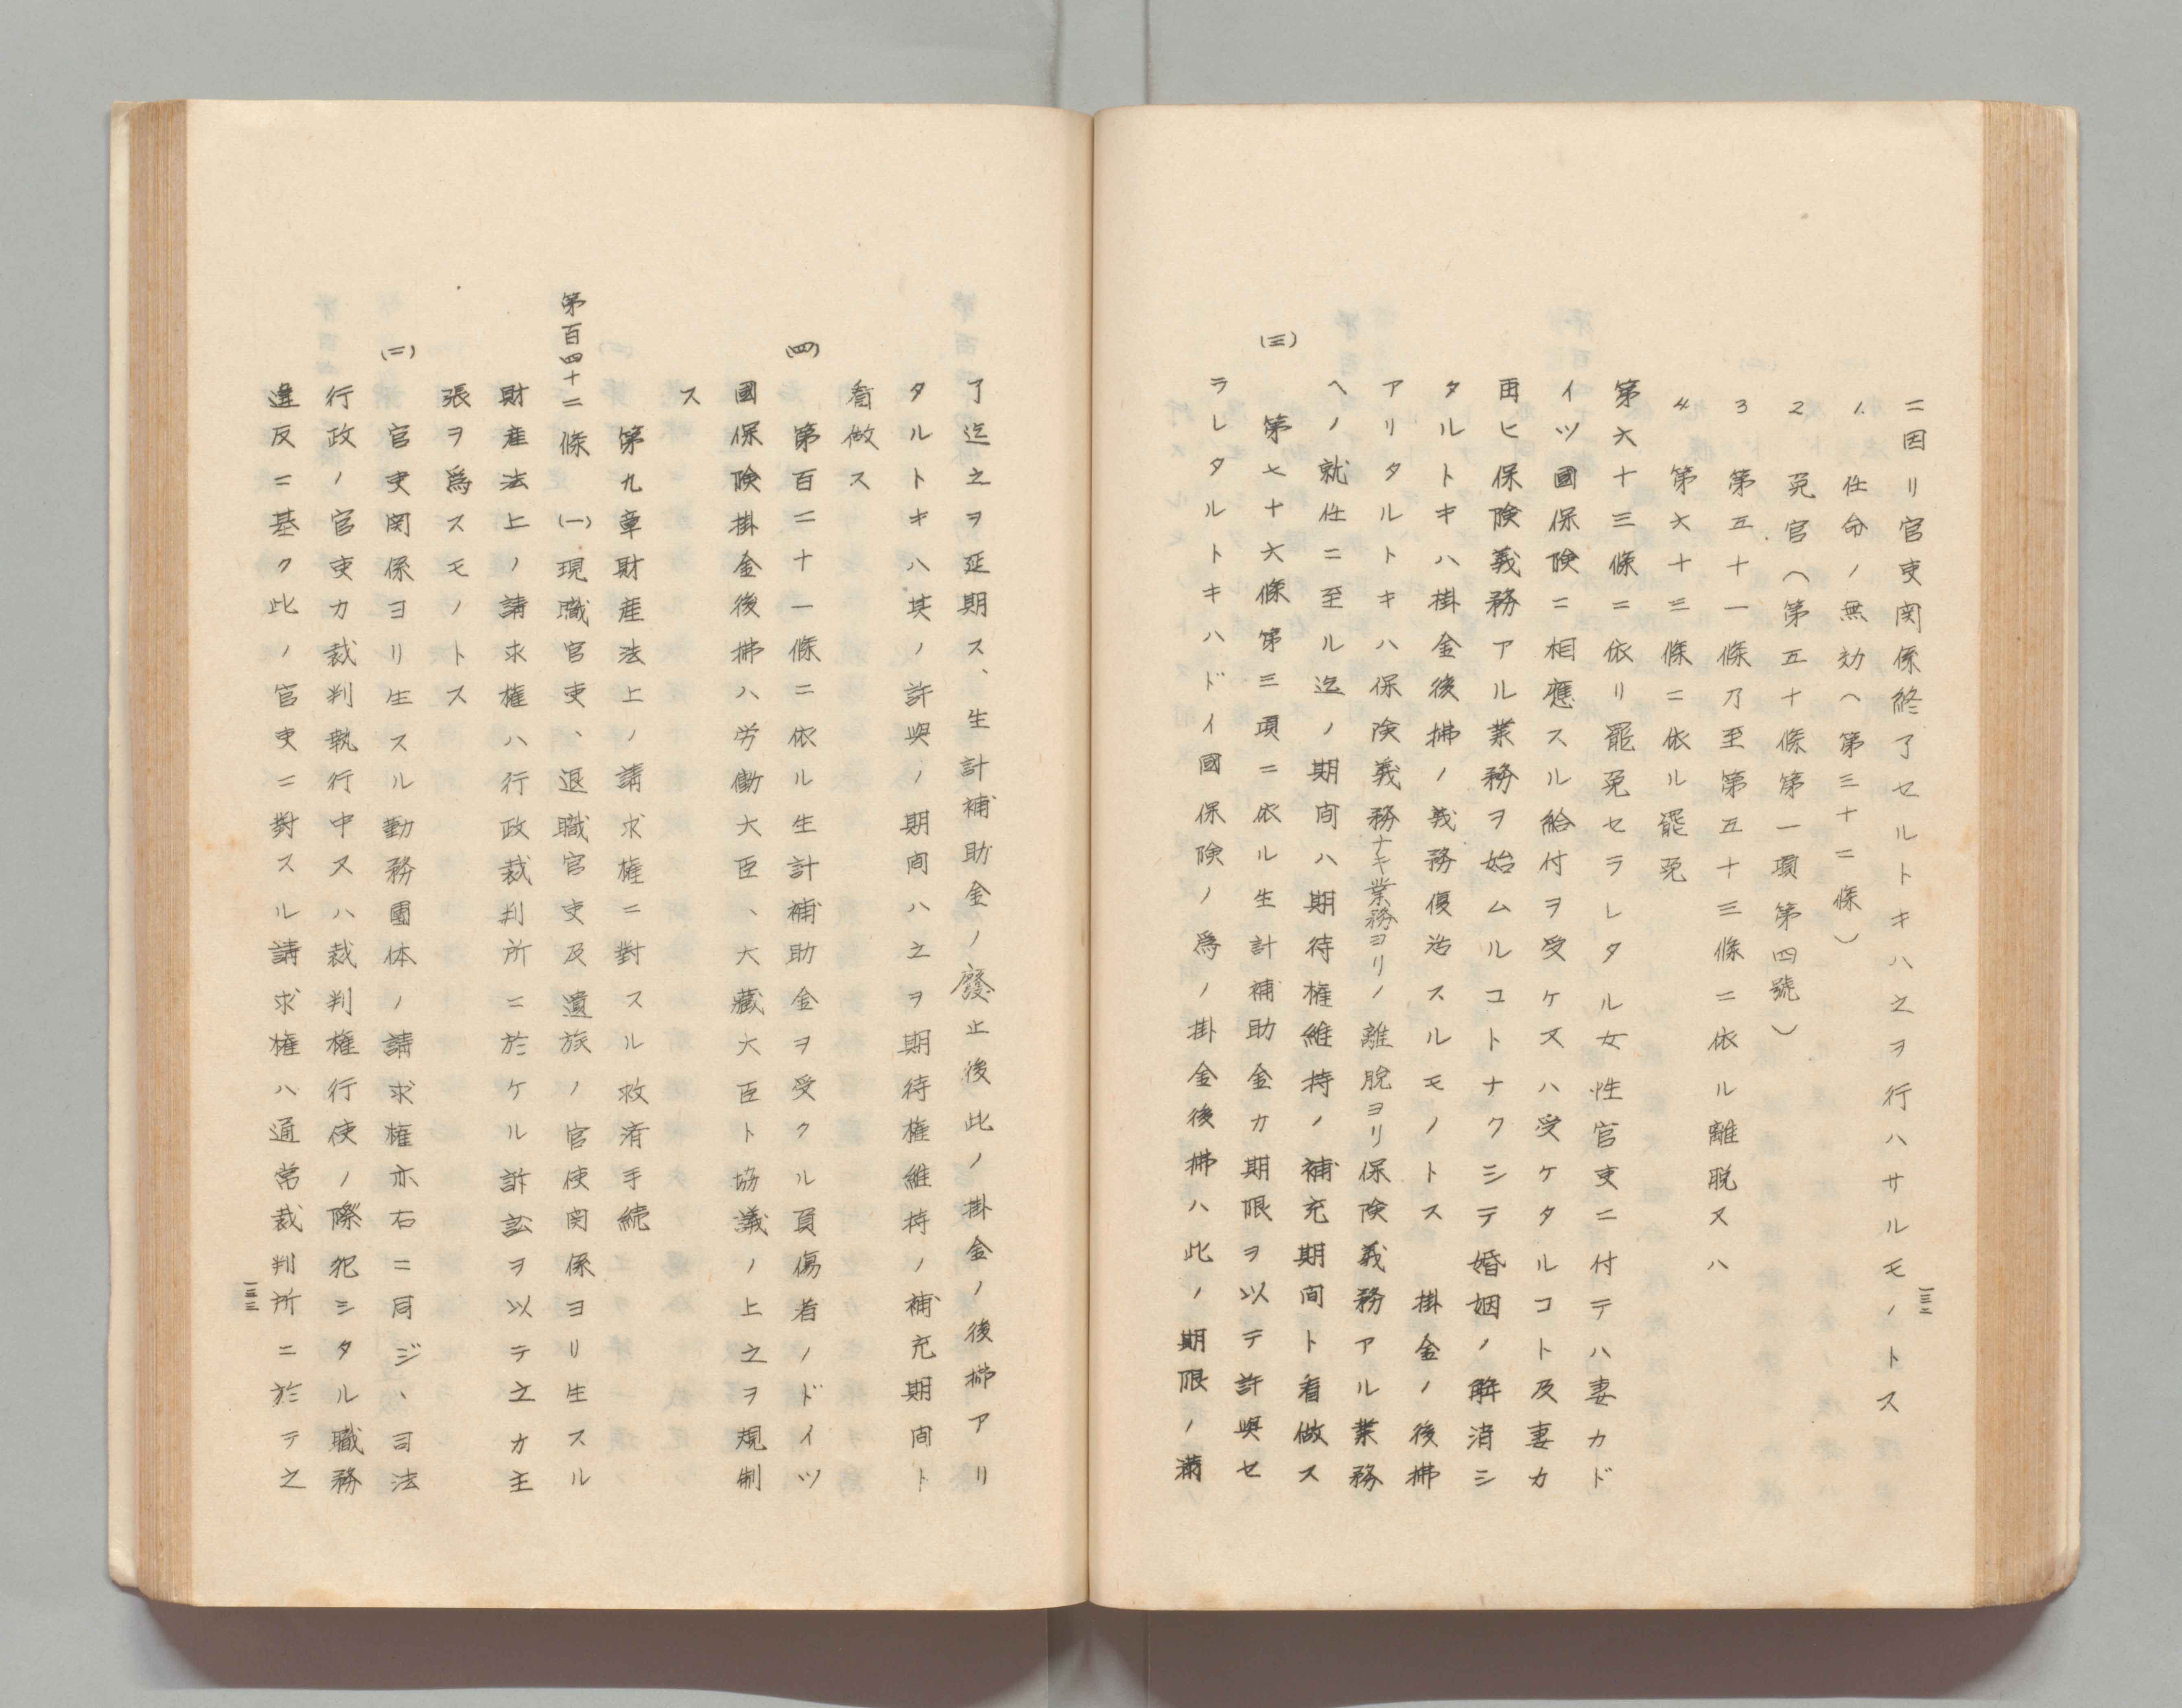 ニ因リ官吏関係終了セルトキハ之ヲ行ハサルモノトス
1. 任命ノ無効(第三十二條)
2 免官(第五十條第一項第四號)
3 第五十一條乃至第五十三條ニ依ル離脱又ハ
4 第六十三條ニ依ル罷免
第六十三條ニ依リ罷免セラレタル女性官吏ニ付テハ妻カド
イツ國保険ニ相應スル給付ヲ受ケ又ハ受ケタルコト及妻カ
再ヒ保険義務アル業務ヲ始ムルコトナクシテ婚姻ノ解消シ
タルトキハ掛金後拂ノ義務復活スルモノトス 掛金ノ後拂
アリタルトキハ保険義務ナキ業務ヨリノ離脱ヨリ保険義務アル業務
ヘノ就任ニ至ル迄ノ期間ハ期待権維持ノ補充期間ト看做ス
(三) 第七十六條第三項ニ依ル生計補助金カ期限ヲ以テ許與セ
ラレタルトキハドイ國保険ノ爲ノ掛金後拂ハ此ノ期限ノ満
一三二
了迄之ヲ延期ス、生計補助金ノ廢止後此ノ掛金ノ後拂アリ
タルトキハ其ノ許與ノ期間ハ之ヲ期待権維持ノ補充期間ト
看做ス
(四) 第百二十一條ニ依ル生計補助金ヲ受クル負傷者ノドイツ
國保険掛金後拂ハ労働大臣、大藏大臣ト協議ノ上之ヲ規制
ス
第九章財産法上ノ請求権ニ對スル救済手続
第百四十二條 (一)現職官吏、退職官吏及遺族ノ官使関係ヨリ生スル
財産法上ノ請求権ハ行政裁判所ニ於ケル訴訟ヲ以テ之カ主
張ヲ爲スモノトス
(二) 官吏関係ヨリ生スル勤務團体ノ請求権亦右ニ同ジ、司法
行政ノ官吏カ裁判執行中又ハ裁判権行使ノ際犯シタル職務
違反ニ基ク此ノ官吏ニ對スル請求権ハ通常裁判所ニ於テ之
一三三